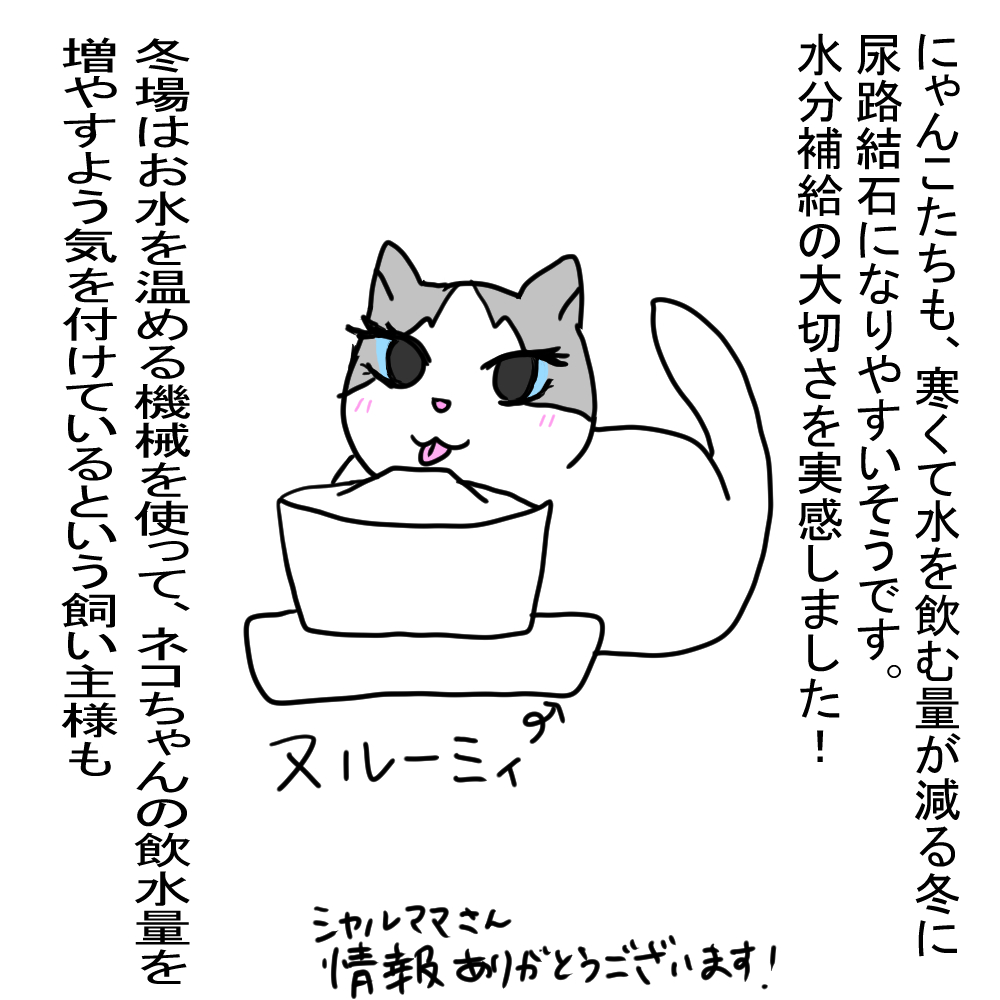 にゃんこたちも、寒くて水を飲む量が減る冬に
尿路結石になりやすいそうです。
水分補給の大切さを実感しました!
冬場はお水を温める機械を使って、ネコちゃんの飲水量を
増やすよう気を付けているという飼い主様も
ヌルーミィ
シャルママさん
情報ありがとうございます!